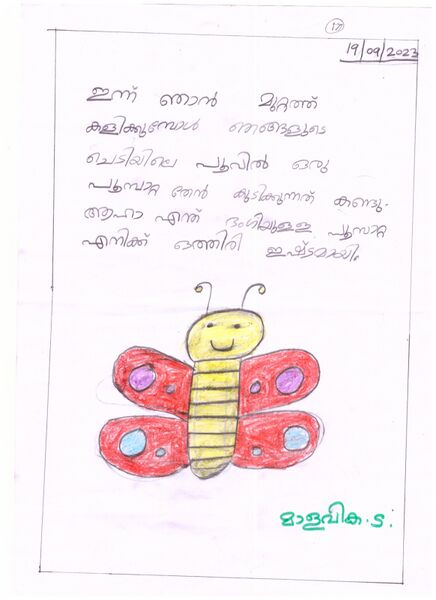 17
19/09/2023
ഇന്ന് ഞാൻ മുറ്റത്ത്
കളിക്കുമ്പോൾ ഞങ്ങളുടെ
ചെടിയിലെ പൂവിൽ ഒരു
പൂമ്പാറ്റ തേൻ കുടിക്കുന്നത് കണ്ടു.
ആഹാ എന്ത് ഭംഗിയുള്ള പൂമ്പാറ്റ
എനിക്ക് ഒത്തിരി ഇഷ്ടമായി.
മാളവിക.s.